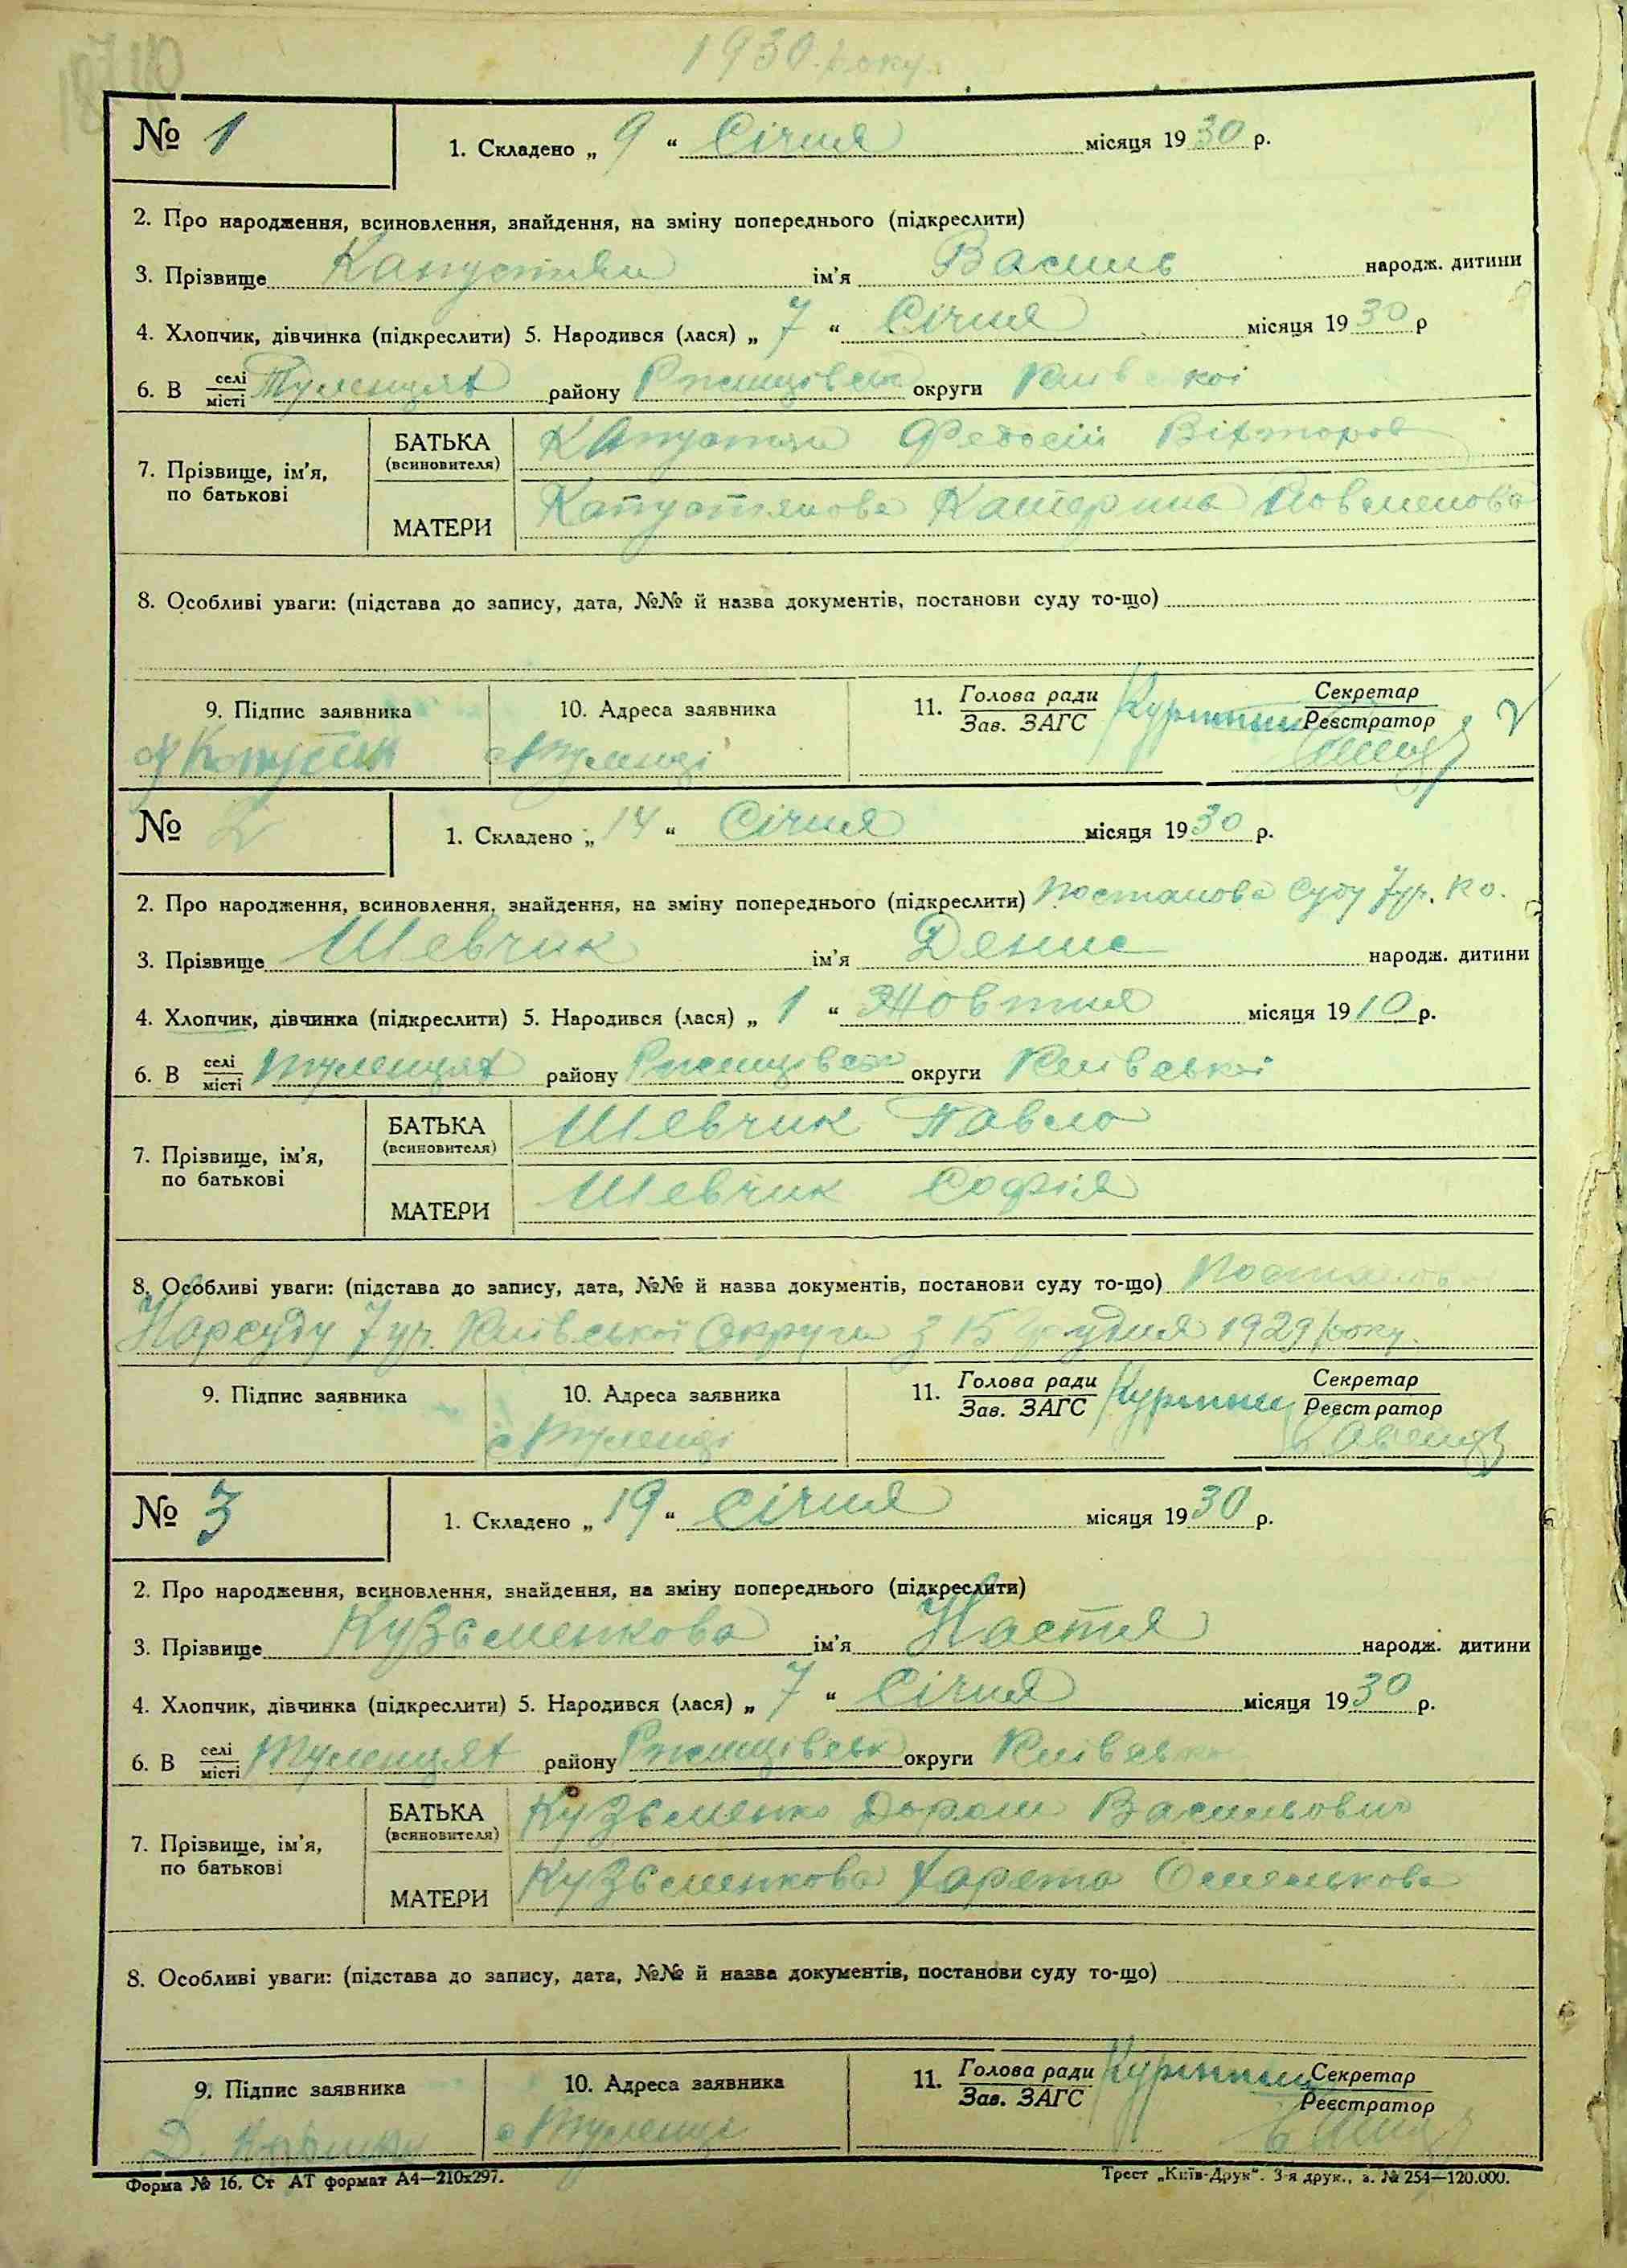 1930 року
№ 1
1. Складено „ 9 “ Січня місяця 1930 р.
2. Про народження, всиновлення, знайдення, на зміну попереднього (підкреслити)
3. Прізвище Капустян ім'я Василь народж. дитини
4. Хлопчик, дівчинка (підкреслити) 5. Народився (лася) „ 7 “ Січня місяця 1930 р
6. В селі місті Туленцях району Ржищівськ округи Київської
7. Прізвище, ім'я, по батькові
БАТЬКА (всиновителя) Капустян Федосій Вікторов
МАТЕРИ Капустянова Катерина
8. Особливі уваги: (підстава до запису, дата, №№ й назва документів, постанови суду то-що)
9. Підпис заявника 10. Адреса заявника 11. Голова ради Зав. ЗАГС Секретар Реєстратор
с Туленці
№ 2
1. Складено „ 14 “ Січня місяця 1930 р.
2. Про народження, всиновлення, знайдення, на зміну попереднього (підкреслити) Постанова Суду 7 уч. Ко.
3. Прізвище Шевчик ім'я Денис народж. дитини
4. Хлопчик, дівчинка (підкреслити) 5. Народився (лася) „ 1 “ Жовтня місяця 1910 р.
6. В селі місті Туленцях району Ржищівськ округи Київської
7. Прізвище, ім'я, по батькові
БАТЬКА (всиновителя) Шевчик Павло
МАТЕРИ Шевчик Софія
8. Особливі уваги: (підстава до запису, дата, №№ й назва документів, постанови суду то-що) Постанов
Нарсуду 7 уч. Київської Округи з 15 Грудня 1929 року.
9. Підпис заявника 10. Адреса заявника 11. Голова ради Зав. ЗАГС Секретар Реєстратор
с Туленці
№ 3
1. Складено „ 19 “ Січня місяця 1930 р.
2. Про народження, всиновлення, знайдення, на зміну попереднього (підкреслити)
3. Прізвище Кузьменкова ім'я Настя народж. дитини
4. Хлопчик, дівчинка (підкреслити) 5. Народився (лася) „ 7 “ Січня місяця 1930 р.
6. В селі місті Туленцях району Ржищівськ округи Київськ
7. Прізвище, ім'я, по батькові
БАТЬКА (всиновителя) Кузьменко Дорош Васильович
МАТЕРИ Кузьменкова Омелькова
8. Особливі уваги: (підстава до запису, дата, №№ й назва документів, постанови суду то-що)
9. Підпис заявника 10. Адреса заявника 11. Голова ради Зав. ЗАГС Секретар Реєстратор
с Туленці
Форма № 16. Ст АТ формат А4—210х297. Трест „Київ-Друк“. 3-я друк., з. № 254—120.000.